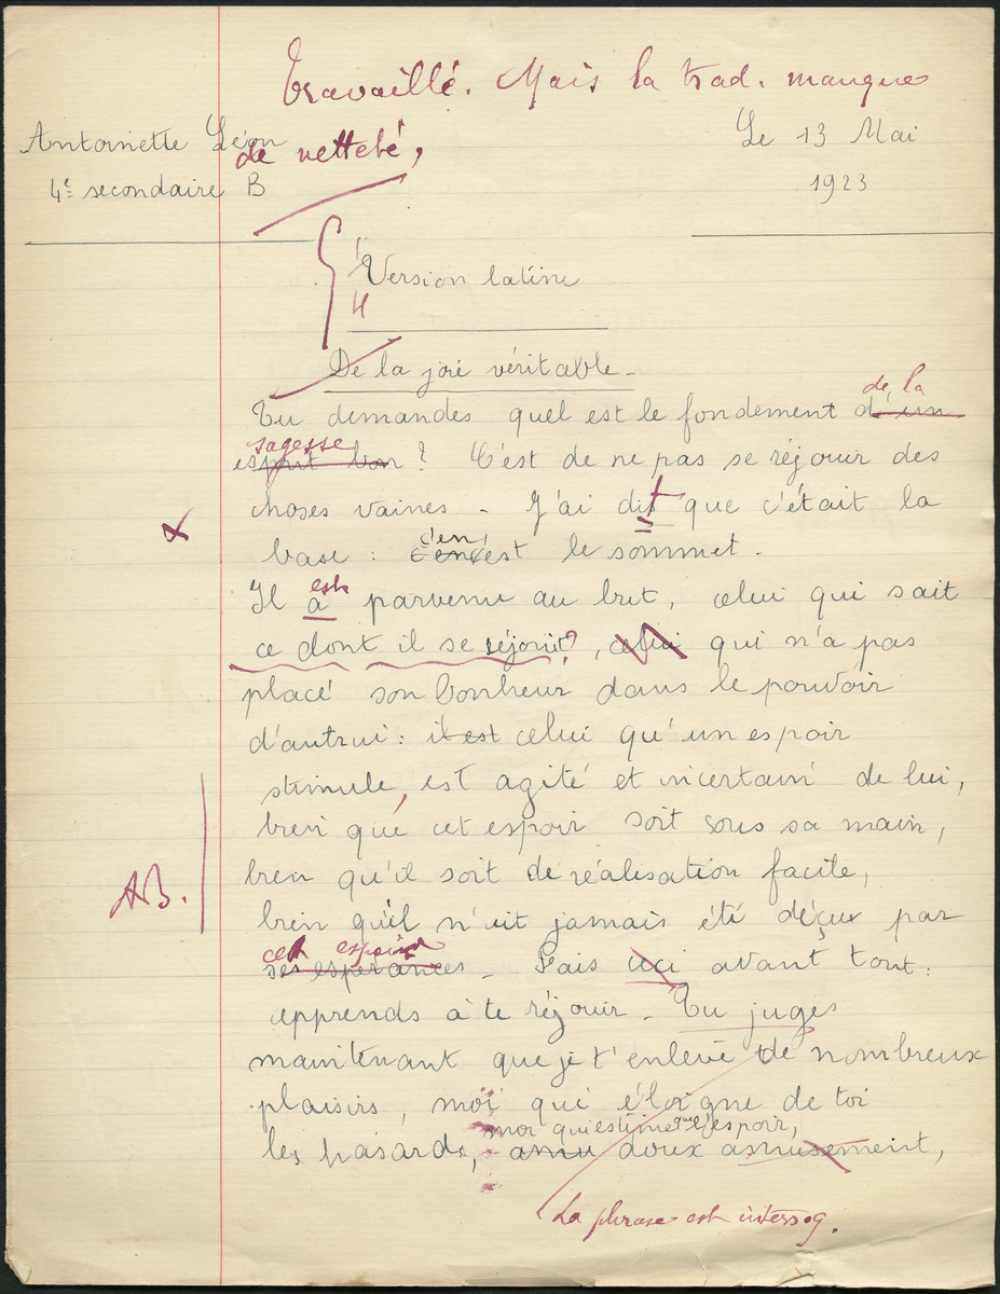 Travaillé. Mais la trad. manque
de netteté,
Antoinette Léon
4e secondaire B
Le 13 Mai
1923
Version latine
De la joie véritable.
de la
Tu demandes quel est le fondement d'un
sagesse
esprit bon ? C'est de ne pas se réjouir des
choses vaines - J'ai dit que c'était la
c'en
base : c'en est le sommet.
est
Il a parvenu au but, celui qui sait
ce dont il se réjouit, celui qui n'a pas
placé son bonheur dans le pouvoir
d'autrui : il est celui qu'un espoir
stimule, est agité et incertain de lui,
bien que cet espoir soit sous sa main,
bien qu'il soit de réalisation facile,
AB.
bien qu'il n'ait jamais été déçu par
cet espoir
ses espérances - Fais ceci avant tout :
apprends à te réjouir - Tu juges
maintenant que je t'enlève de nombreux
plaisirs, moi qui éloigne de toi
moi qui estime que l'espoir,
les hasards, doux amusement,
La phrase est interrog.